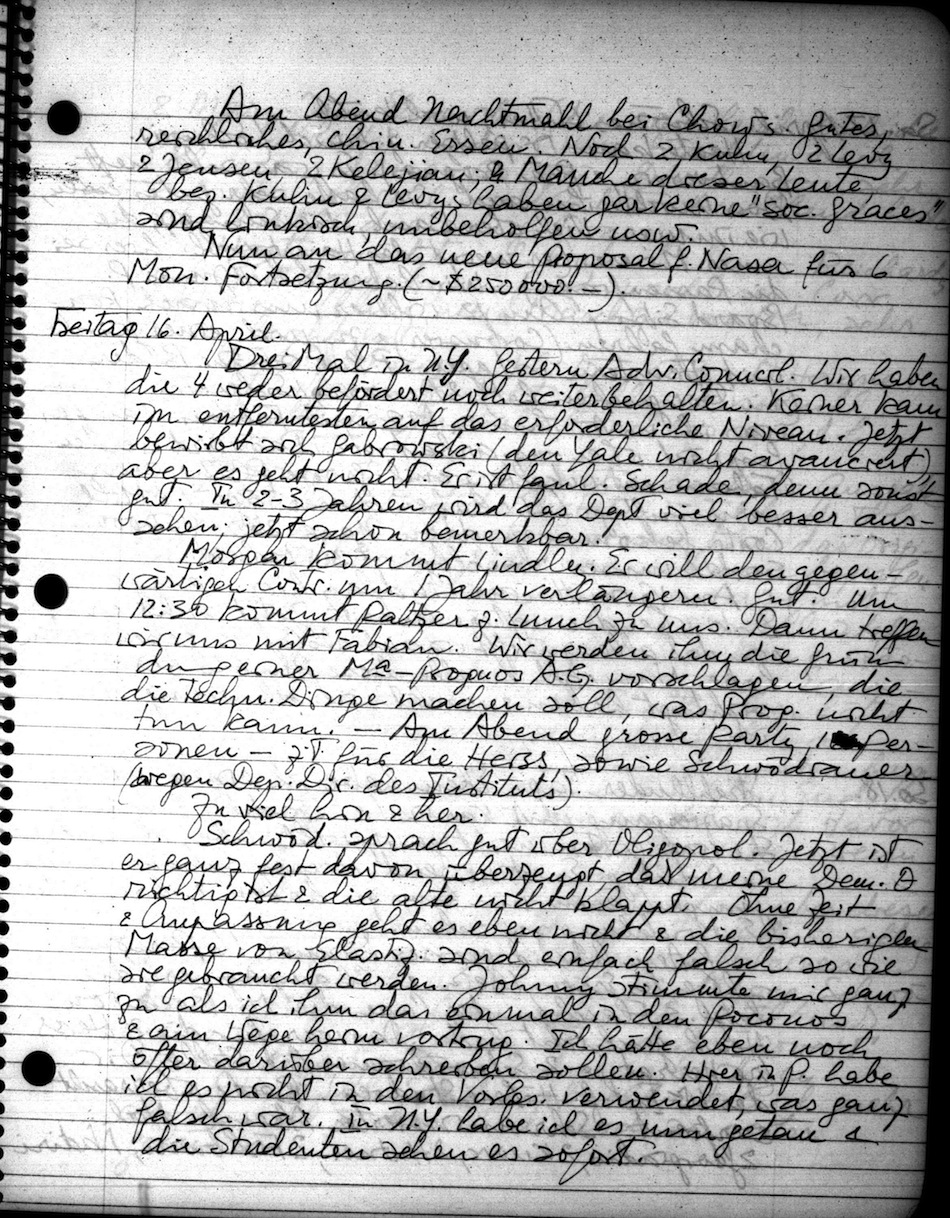 Am Abend Nachtmahl bei Chow's. Gutes,
reichliches, chin. Essen. Noch 2 Kuhn, 2 Levy
2 Jensen, 2 Kelejian; & Manche dieser Leute
bes. Kuhn & Levys haben gar keine "soc. graces"
sind linkisch, unbeholfen usw.
Nun an das neue Proposal f. Nasa für 6
Mon. Fortsetzung. (~$250000.—).
Freitag 16. April.
Drei Mal in N.Y. Gestern Adv. Council. Wir haben
die 4 weder befördert noch weiterbehalten. Keiner kam
im entferntesten auf das erforderliche Niveau. Jetzt
bewirbt sich Gabrowski (den Yale nicht avanciert)
aber es geht nicht. Er ist faul. Schade, denn sonst
gut. In 2-3 Jahren wird das Dept viel besser aus-
sehen; jetzt schon bemerkbar.
Morgen kommt Lindley. Er will den gegen-
wärtigen Contr. um 1 Jahr verlängern. Gut. Um
12:30 kommt Paltzer z. Lunch zu uns. Dann treffen
wir uns mit Fabian. Wir werden ihm die Grün-
dung einer Ma-Prognos A.G. vorschlagen, die
die Techn. Dinge machen soll, was Prog. nicht
tun kann. — Am Abend grosse Party, Per-
sonen — z.T. für die Herss, sowie Schwödiauer
(wegen Dep. Dir. des Instituts).
Zu viel hin & her.
Schwöd. sprach gut über Oligopol. Jetzt ist
er ganz fest davon überzeugt dass meine Dem. Θ
richtig ist & die alte nicht klappt. Ohne Zeit
& Anpassung geht es eben nicht & die bisherigen
Masse von Elastiz. sind einfach falsch so wie
sie gebraucht werden. Johnny stimmte mir ganz
zu als ich ihm das einmal in den Poconos
& am Wege heim vortrug. Ich hätte eben noch
öfter darüber schreiben sollen. Hier in P. habe
ich es nicht in den Vorles. verwendet, was ganz
falsch war. In N.Y. habe ich es nun getan &
die Studenten sehen es sofort.